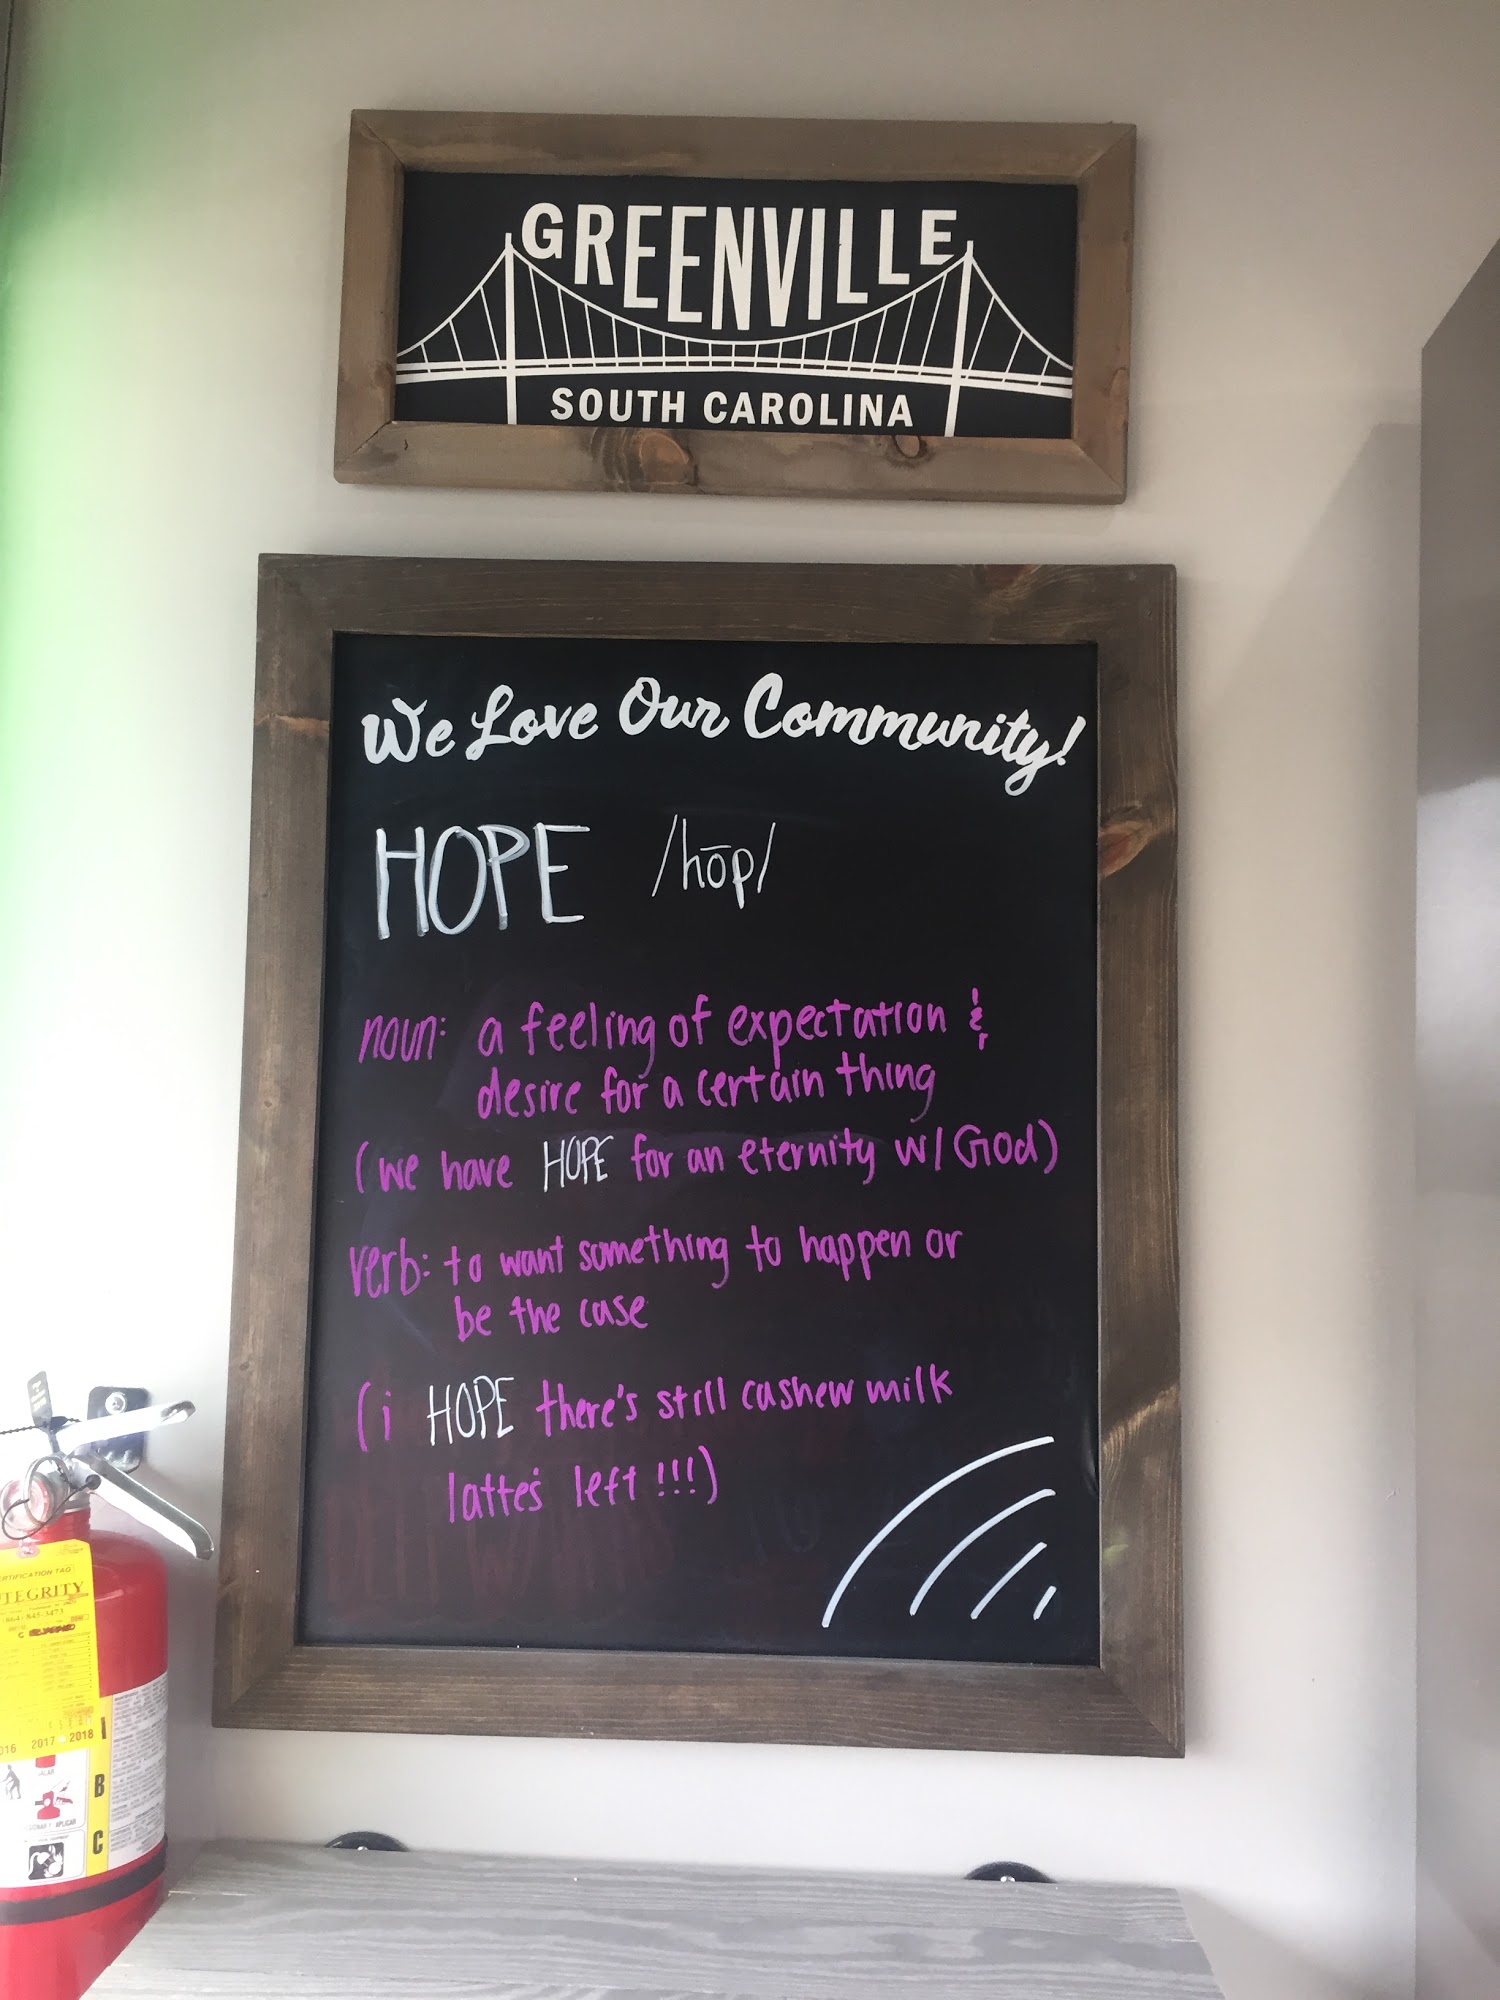 GREENVILLE
SOUTH CAROLINA
We Love Our Community!
HOPE /hōp/
noun: a feeling of expectation &
desire for a certain thing
(we have HOPE for an eternity w/ God)
verb: to want something to happen or
be the case
(i HOPE there's still cashew milk
latte's left !!!)
CERTIFICATION TAG
INTEGRITY
(864) 845-3473
2016 2017 2018
I
B
C
JALAR
Y APLICAR